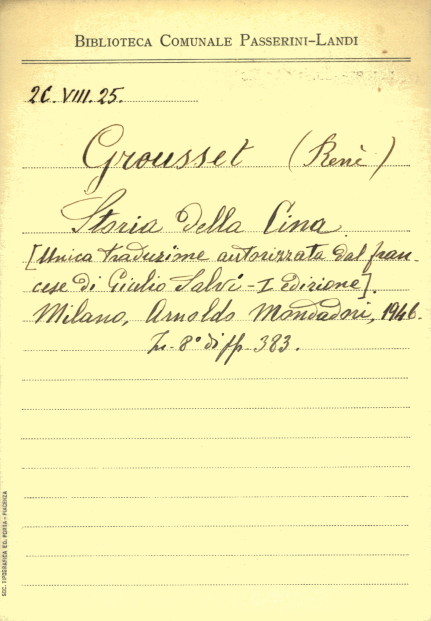 BIBLIOTECA COMUNALE PASSERINI-LANDI
2C. VIII. 25.
Grousset (Renè)
Storia della Cina
[Unica traduzione autorizzata dal fran-
cese di Giulio Salvi - I edizione].
Milano, Arnoldo Mondadori, 1946.
In-8° di pp. 383.
SOC. TIPOGRAFICA ED. PORTA - PIACENZA